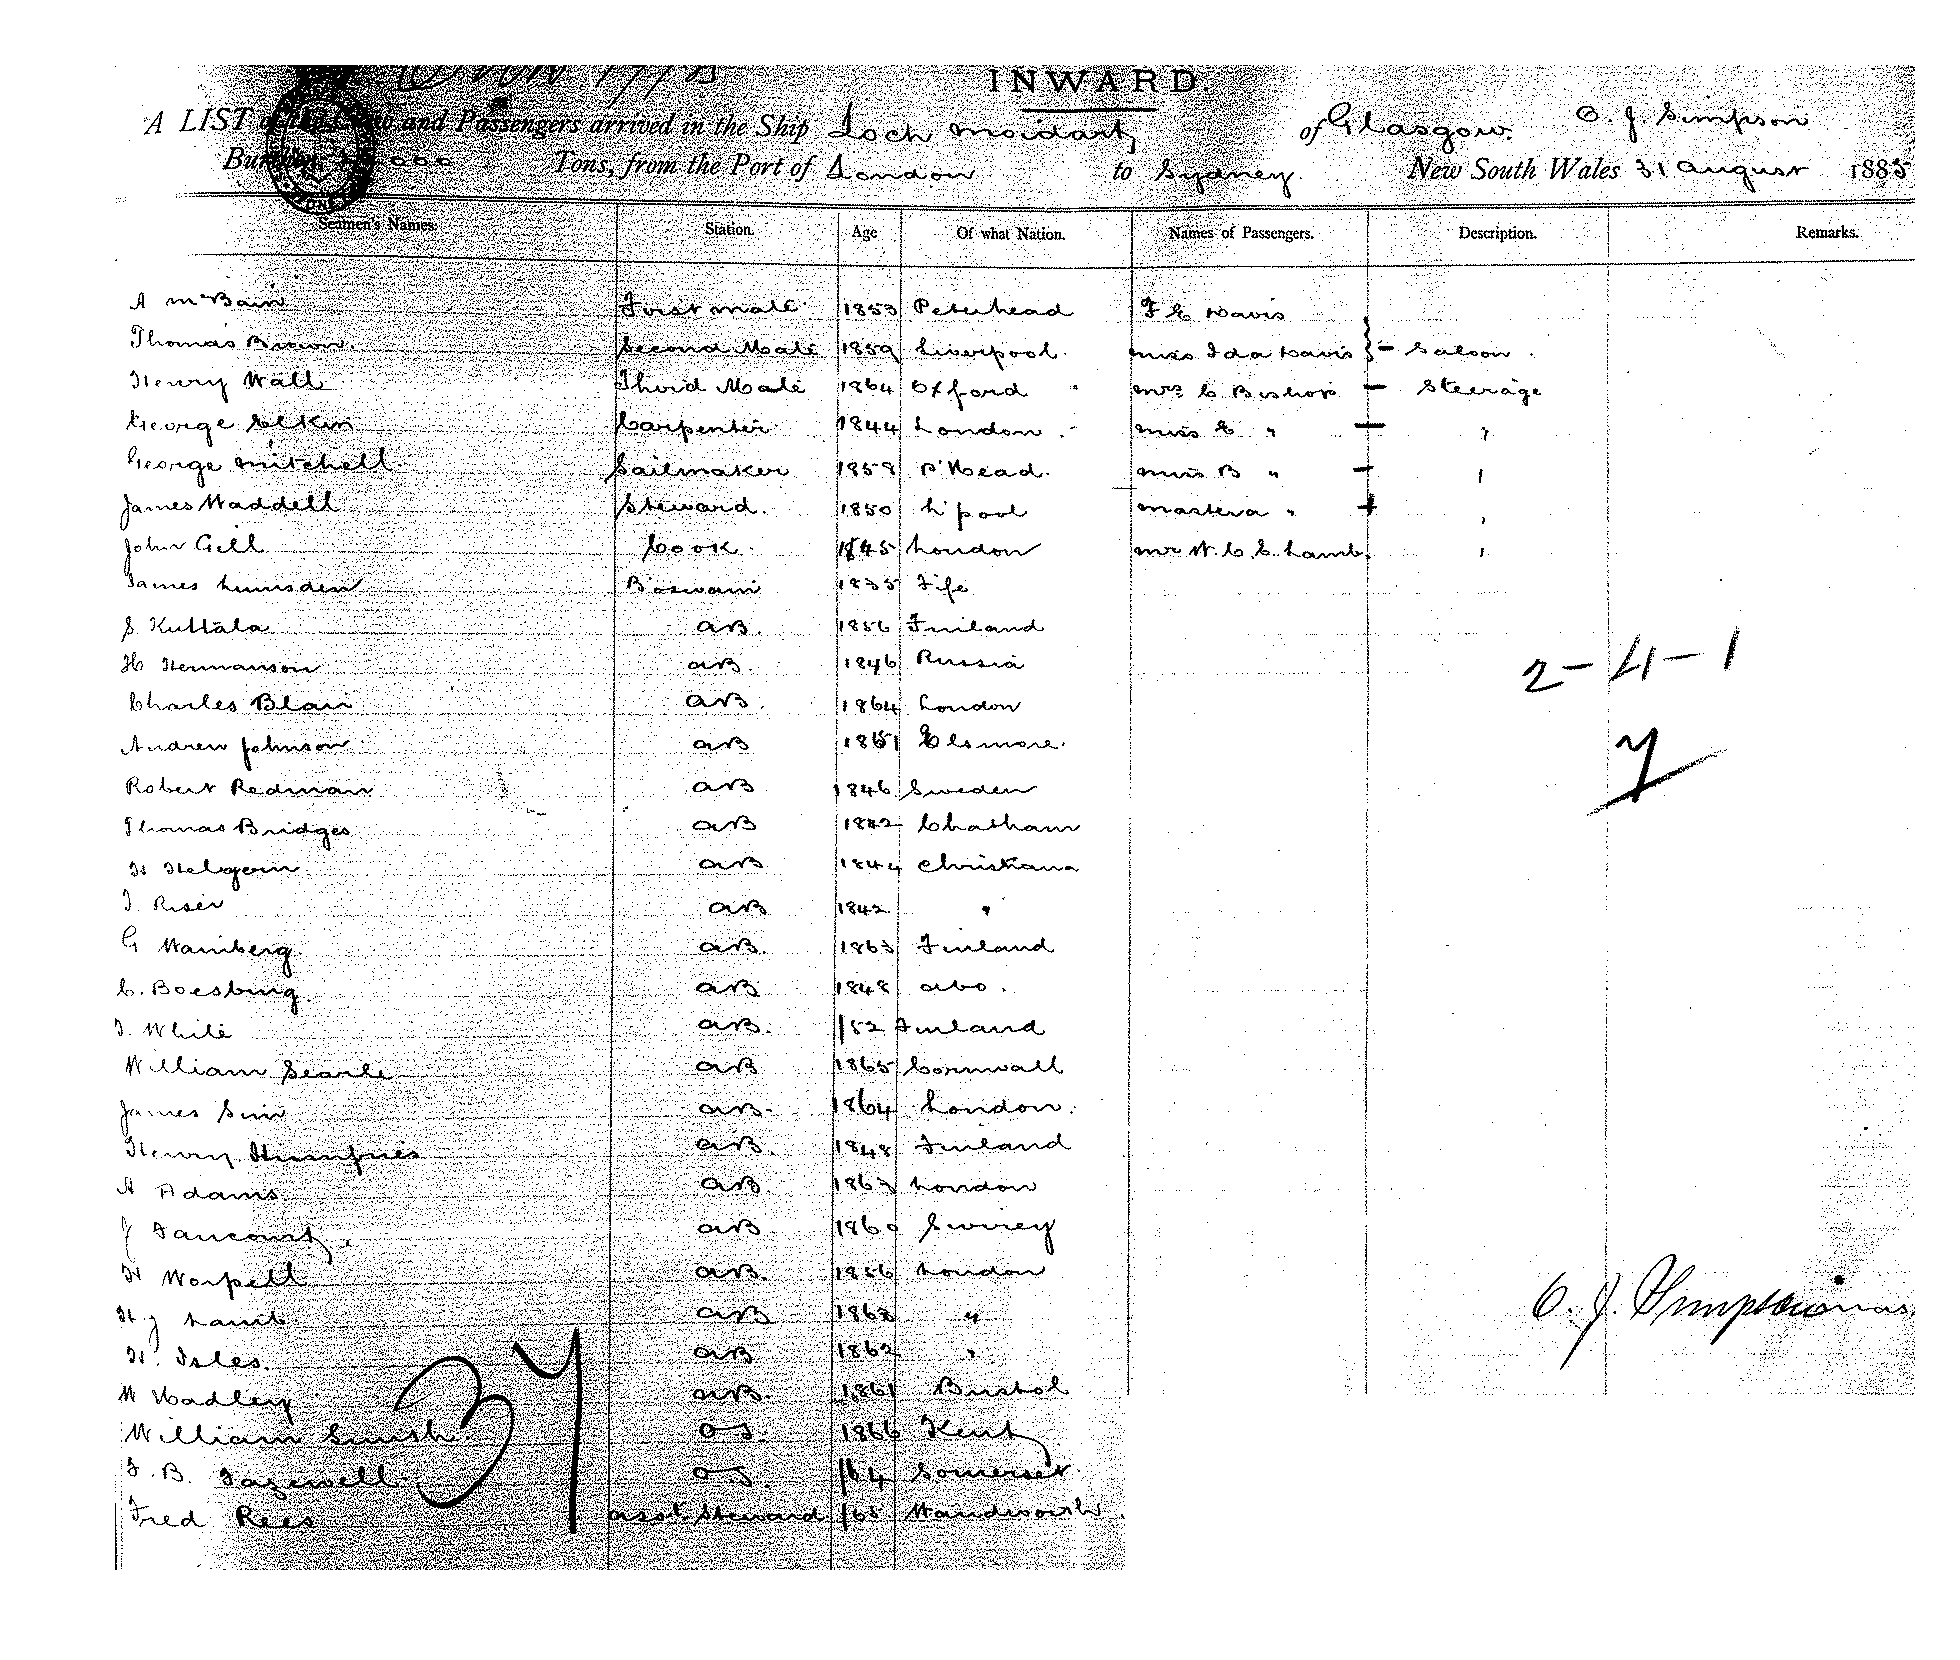 INWARD.
A LIST of the Crew and Passengers arrived in the Ship Loch Moidart of Glasgow. C. J. Simpson
Tons, from the Port of London to Sydney New South Wales 31 August 1885
Seamen's Names. Station. Age Of what Nation. Names of Passengers. Description. Remarks.
A McBain First Mate 1853 Peterhead F E Davis
Thomas Brown. Second Mate 1859 Liverpool. Miss Ida Davis } - Saloon.
Henry Wall Third Mate 1864 Oxford Mrs C Bishop - Steerage
George Elkin Carpenter 1844 London. Miss E " - "
George Mitchell Sailmaker 1858 P'Head. Miss B " - "
James Waddell Steward. 1850 L'pool " "
John Gill Cook. 1845 London Mr W. C. E. Lamb. "
James Lumsden Boswain 1835 Fife
S. Kuttala AB. 1856 Finland
H Hermanson AB. 1846 Russia
2-4-1
Charles Blair AB. 1864 London
Andrew Johnson AB Elsmore.
7
Robert Redman AB 1846 Sweden
Thomas Bridges AB 1842 Chatham
H AB 1844 Christiana
AB 1842 "
G Wamberg. AB. 1863 Finland
C. AB 1848 Abo.
J. White AB. /52 Finland
William Searle AB 1865 Cornwall
James Sim AB. 1864 London.
Henry Humfries AB. 1848 Finland
A Adams. AB. 1863 London
J AB 1860 Surrey
H Worpell AB. 1856 London
C. J. Simpson
H J Lamb. AB 1862 "
H. Isles. AB 1862 "
W Hadley AB. 1861 Bristol
37
William Smith. OS. 1866 Kent
F. B. Tazewell OS. /64 Somerset.
Fred Rees Asst Steward /65 Wandsworth.